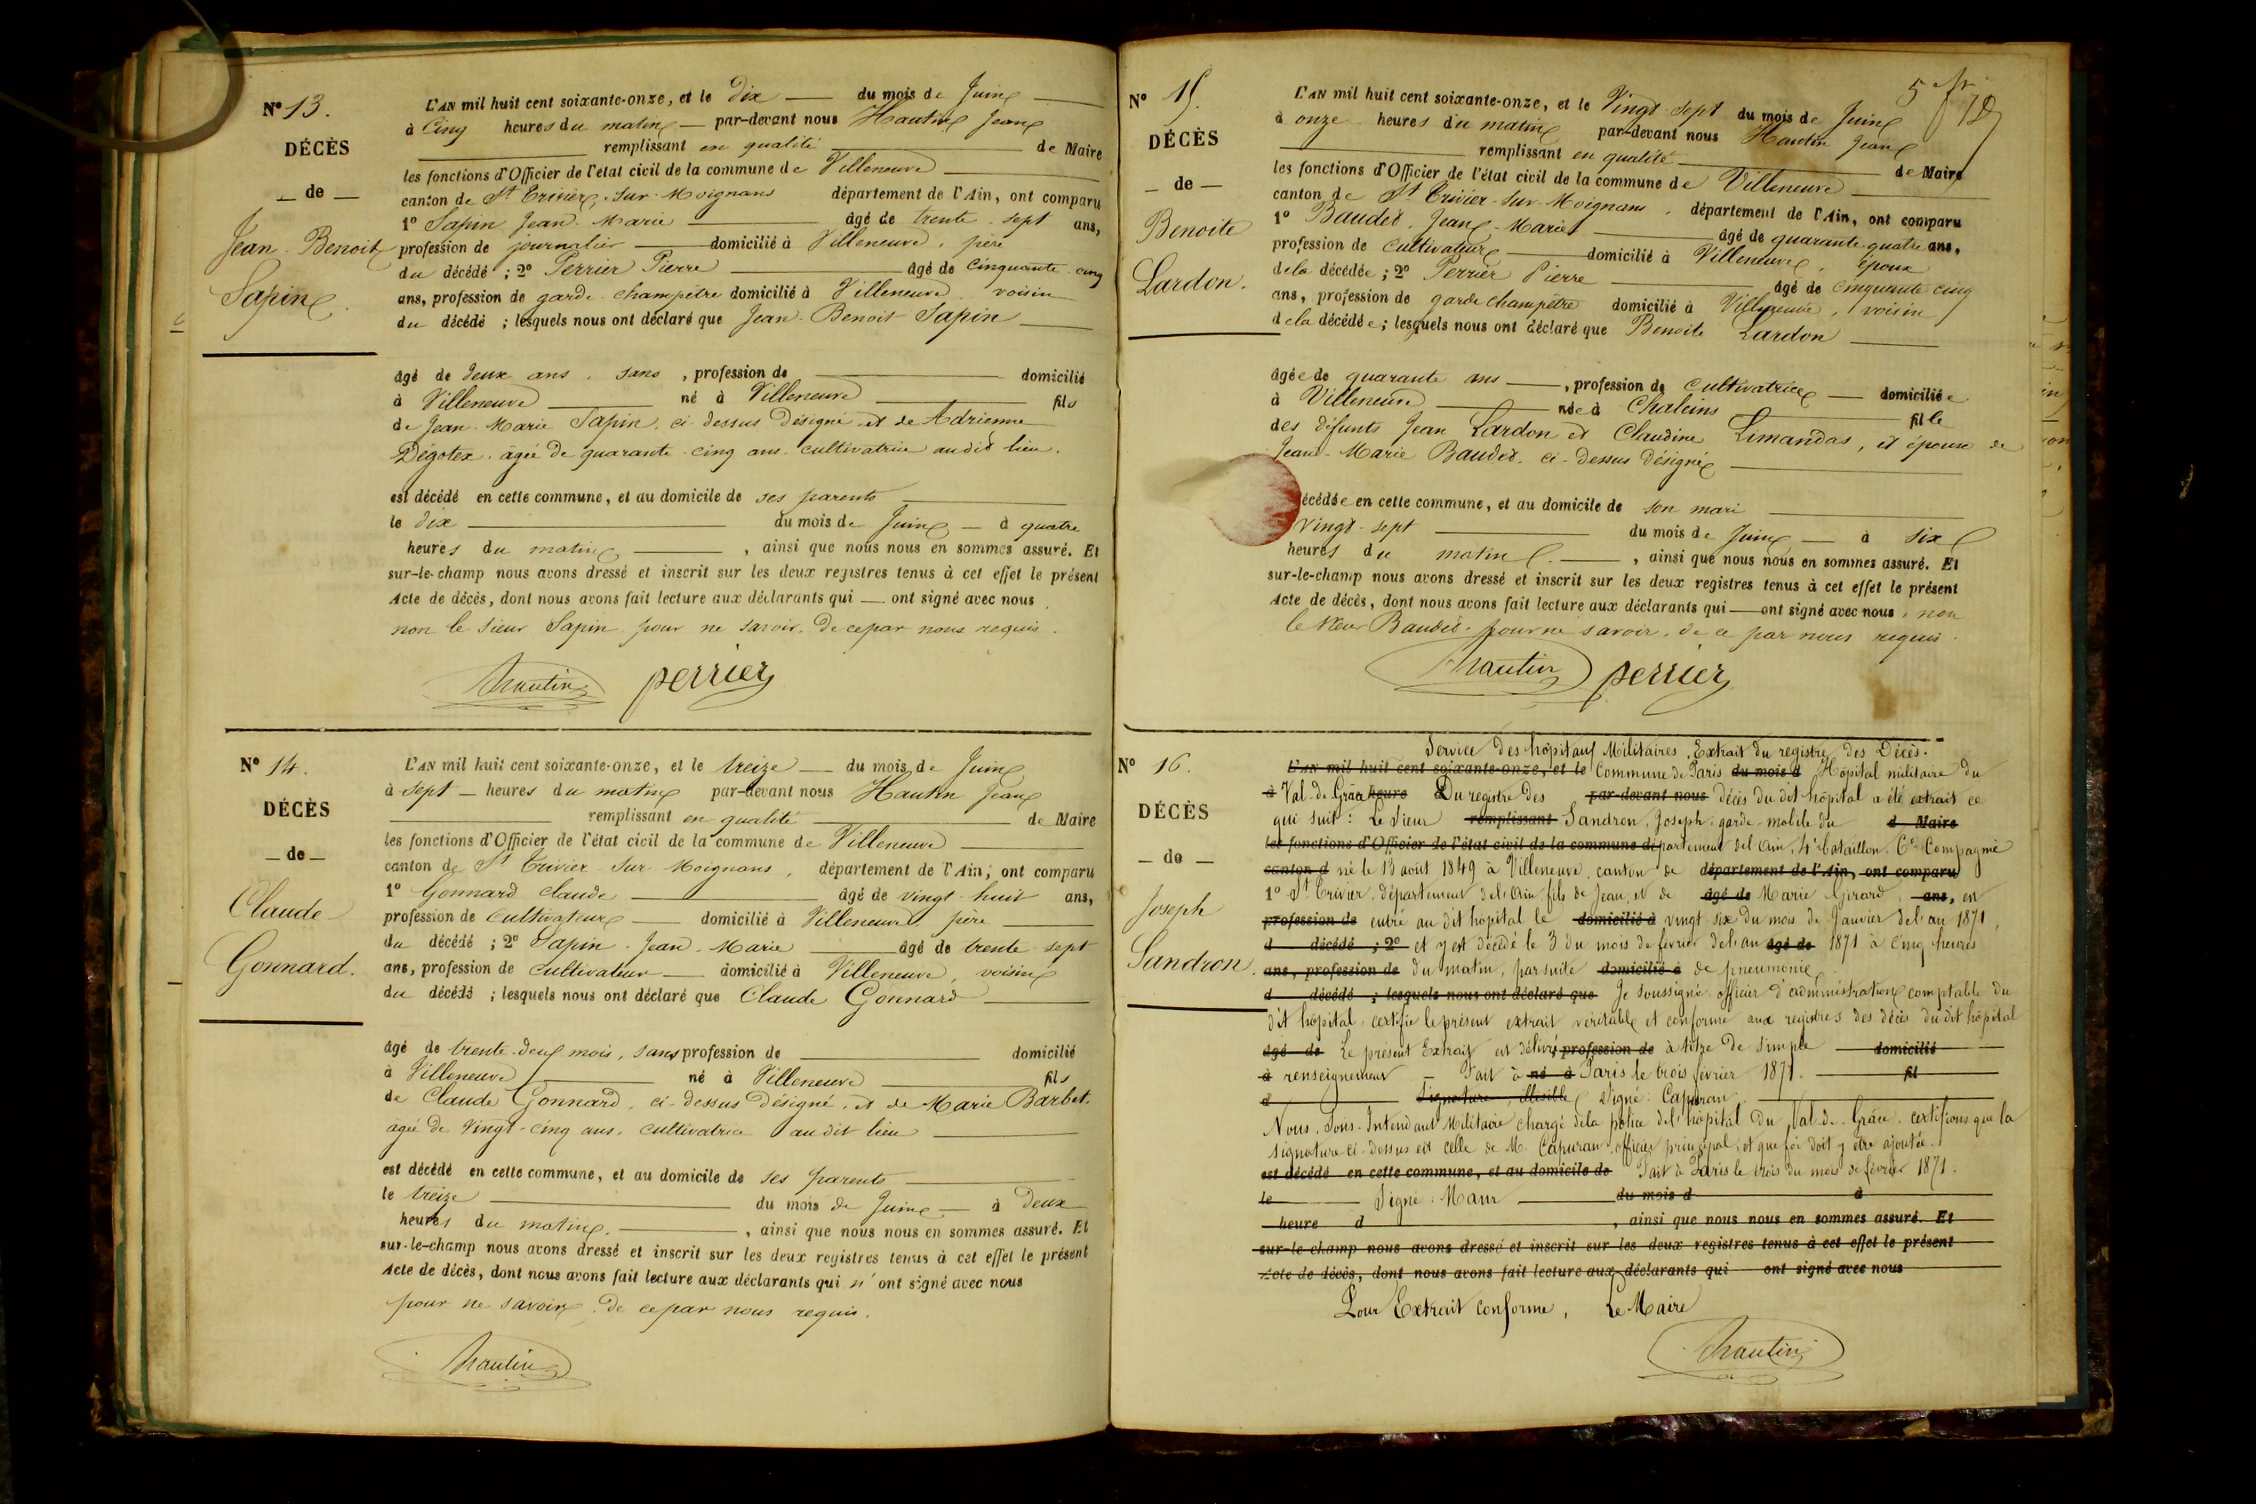 N° 13.
DÉCÈS
de
Jean-Benoit
Sapin.
L'AN mil huit cent soixante-onze, et le dix du mois de Juin
à Cinq heures du matin par-devant nous Hautin Jean
remplissant en qualité de Maire
les fonctions d'Officier de l'état civil de la commune de Villeneuve
canton de St Trivier-Sur-Moignans département de l'Ain, ont comparu
1° Sapin Jean-Marie âgé de trente-sept ans,
profession de journalier domicilié à Villeneuve, père
du décédé ; 2° Perrier Pierre âgé de Cinquante-cinq
ans, profession de garde-champêtre domicilié à Villeneuve voisin
du décédé ; lesquels nous ont déclaré que Jean-Benoit Sapin
âgé de deux ans, sans, profession de domicilié
à Villeneuve né à Villeneuve fils
de Jean-Marie Sapin, ci-dessus désigné et de Adrienne
Dégotex, âgée de quarante-cinq ans, cultivatrice audit lieu.
est décédé en cette commune, et au domicile de ses parents
le dix du mois de Juin à quatre
heures du matin, ainsi que nous nous en sommes assuré. Et
sur-le-champ nous avons dressé et inscrit sur les deux registres tenus à cet effet le présent
Acte de décès, dont nous avons fait lecture aux déclarants qui ont signé avec nous
non le sieur Sapin pour ne savoir, de ce par nous requis.
Hautin perrier
N° 14.
DÉCÈS
de
Claude
Gonnard.
L'AN mil huit cent soixante-onze, et le treize du mois de Juin
à sept heures du matin par-devant nous Hautin Jean
remplissant en qualité de Maire
les fonctions d'Officier de l'état civil de la commune de Villeneuve
canton de St Trivier-Sur-Moignans, département de l'Ain, ont comparu
1° Gonnard Claude âgé de vingt-huit ans,
profession de Cultivateur domicilié à Villeneuve, père
du décédé ; 2° Sapin Jean-Marie âgé de trente-sept
ans, profession de Cultivateur domicilié à Villeneuve, voisin
du décédé ; lesquels nous ont déclaré que Claude Gonnard
âgé de trente-deux mois, sans profession de domicilié
à Villeneuve né à Villeneuve fils
de Claude Gonnard, ci-dessus désigné, et de Marie Barbet,
âgée de vingt-cinq ans, cultivatrice au dit lieu
est décédé en cette commune, et au domicile de ses parents
le treize du mois de Juin à deux
heures du matin, ainsi que nous nous en sommes assuré. Et
sur-le-champ nous avons dressé et inscrit sur les deux registres tenus à cet effet le présent
Acte de décès, dont nous avons fait lecture aux déclarants qui n'ont signé avec nous
pour ne savoir, de ce par nous requis.
Hautin
N° 15.
DÉCÈS
de
Benoite
Lardon.
L'AN mil huit cent soixante-onze, et le Vingt-sept du mois de Juin
à onze heures du matin par-devant nous Hautin Jean
remplissant en qualité de Maire
les fonctions d'Officier de l'état civil de la commune de Villeneuve
canton de St Trivier-Sur-Moignans, département de l'Ain, ont comparu
1° Baudet, Jean-Marie âgé de quarante-quatre ans,
profession de Cultivateur domicilié à Villeneuve, époux
de la décédée ; 2° Perrier Pierre âgé de cinquante cinq
ans, profession de garde champêtre domicilié à Villeneuve, voisin
de la décédée ; lesquels nous ont déclaré que Benoite Lardon
âgée de quarante ans, profession de Cultivatrice domiciliée
à Villeneuve née à Chaleins fille
des défunts Jean Lardon et Claudine Limandas, et épouse de
Jean-Marie Baudet, ci-dessus désigné
écédée en cette commune, et au domicile de son mari
vingt-sept du mois de Juin à six
heures du matin, ainsi que nous nous en sommes assuré. Et
sur-le-champ nous avons dressé et inscrit sur les deux registres tenus à cet effet le présent
Acte de décès, dont nous avons fait lecture aux déclarants qui ont signé avec nous, non
le sieur Baudet, pour ne savoir, de ce par nous requis.
Hautin perrier
N° 16.
DÉCÈS
de
Joseph
Sandron.
Service des hôpitaux Militaires. Extrait du registre des Décès.
L'AN mil huit cent soixante-onze, et le Commune de Paris du mois d Hôpital militaire du
à Val-de-Grâce heure Du registre des par-devant nous décès du dit hôpital a été extrait ce
qui suit : Le Sieur remplissant Sandron, Joseph, garde-mobile du d Maire
les fonctions d'Officier de l'état civil de la commune département de l'Ain, 4e bataillon, 6e Compagnie
canton d né le 13 août 1849 à Villeneuve, canton de département de l'Ain, ont comparu
1° St Trivier, département de l'Ain, fils de Jean, et de âgé de Marie Girard, ans, est
profession de entré au dit hôpital le domicilié à vingt six du mois de Janvier de l'an 1871,
d décédé ; 2° et y est décédé le 3 du mois de février de l'an âgé de 1871 à cinq heures
ans, profession de du matin, par suite domicilié à de pneumonie
d décédé ; lesquels nous ont déclaré que Je soussigné officier d'administration comptable du
dit hôpital, certifie le présent extrait véritable et conforme aux registres des décès du dit hôpital
âgé de Le présent Extrait est délivré profession de à titre de simple domicilié
à renseignement Fait à né à Paris le trois février 1871. fil
d Signature illisible Signé : Capuran
Nous, Sous-Intendant Militaire chargé de la police de l'hôpital du Val-de-Grâce, certifions que la
signature ci-dessus est celle de M. Capuran, officier principal, et que foi doit y être ajoutée.
est décédé en cette commune, et au domicile de Fait à Paris le trois du mois de février 1871.
le Signé : du mois d à
heure d, ainsi que nous nous en sommes assuré. Et
sur-le-champ nous avons dressé et inscrit sur les deux registres tenus à cet effet le présent
Acte de décès, dont nous avons fait lecture aux déclarants qui ont signé avec nous
Pour Extrait conforme, Le Maire
Hautin